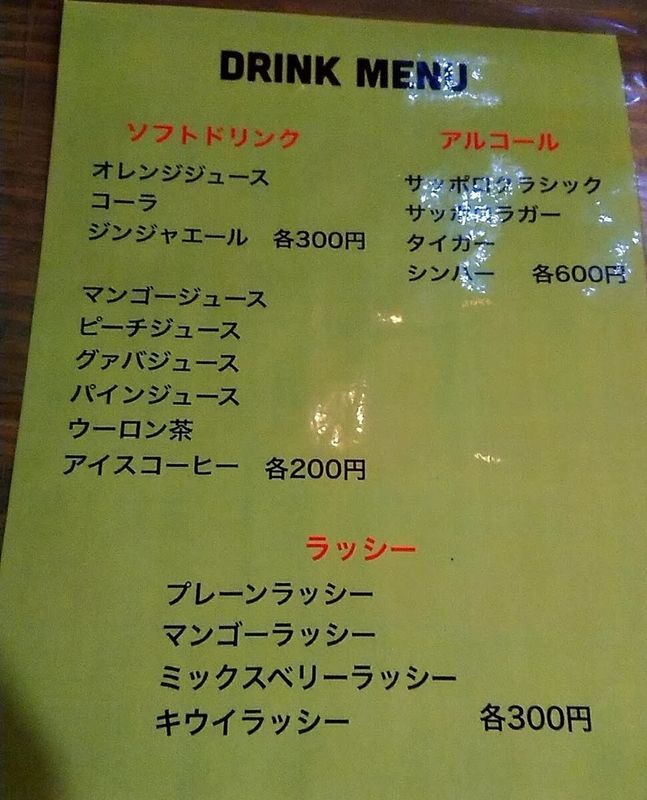 DRINK MENU
ソフトドリンク
オレンジジュース
コーラ
ジンジャエール 各300円
マンゴージュース
ピーチジュース
グァバジュース
パインジュース
ウーロン茶
アイスコーヒー 各200円
アルコール
サッポロクラシック
サッポロラガー
タイガー
シンハー 各600円
ラッシー
プレーンラッシー
マンゴーラッシー
ミックスベリーラッシー
キウイラッシー 各300円